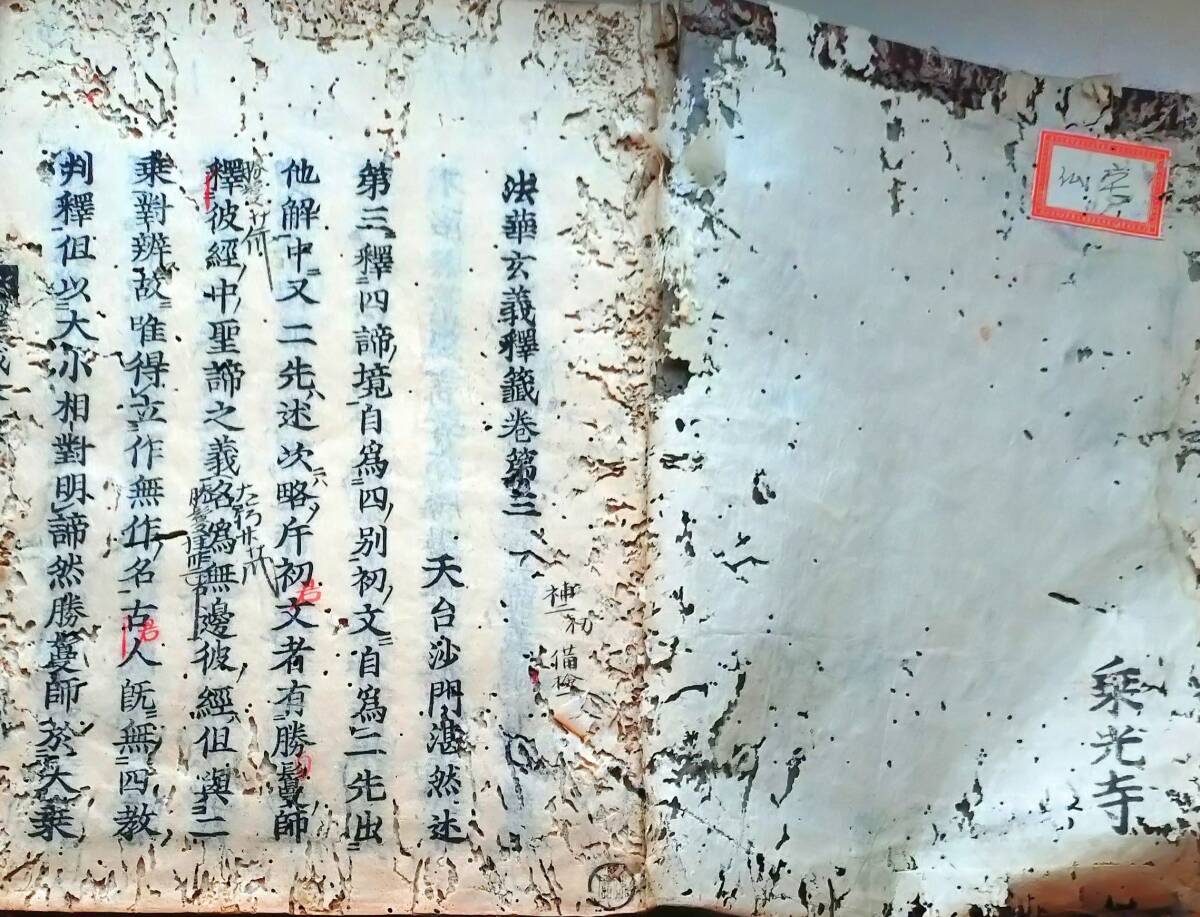 乗光寺
法華玄義釋籤卷第三
天台沙門湛然述
第三釋四諦境自爲四別初文自爲二先出
他解中又二先述次略斥初文者有勝鬘師
釋彼經中聖諦之義名爲無邊彼經但與二
乘對辨故唯得立作無作名古人既無四教
判釋但以大小相對明諦然勝鬘師於大乘